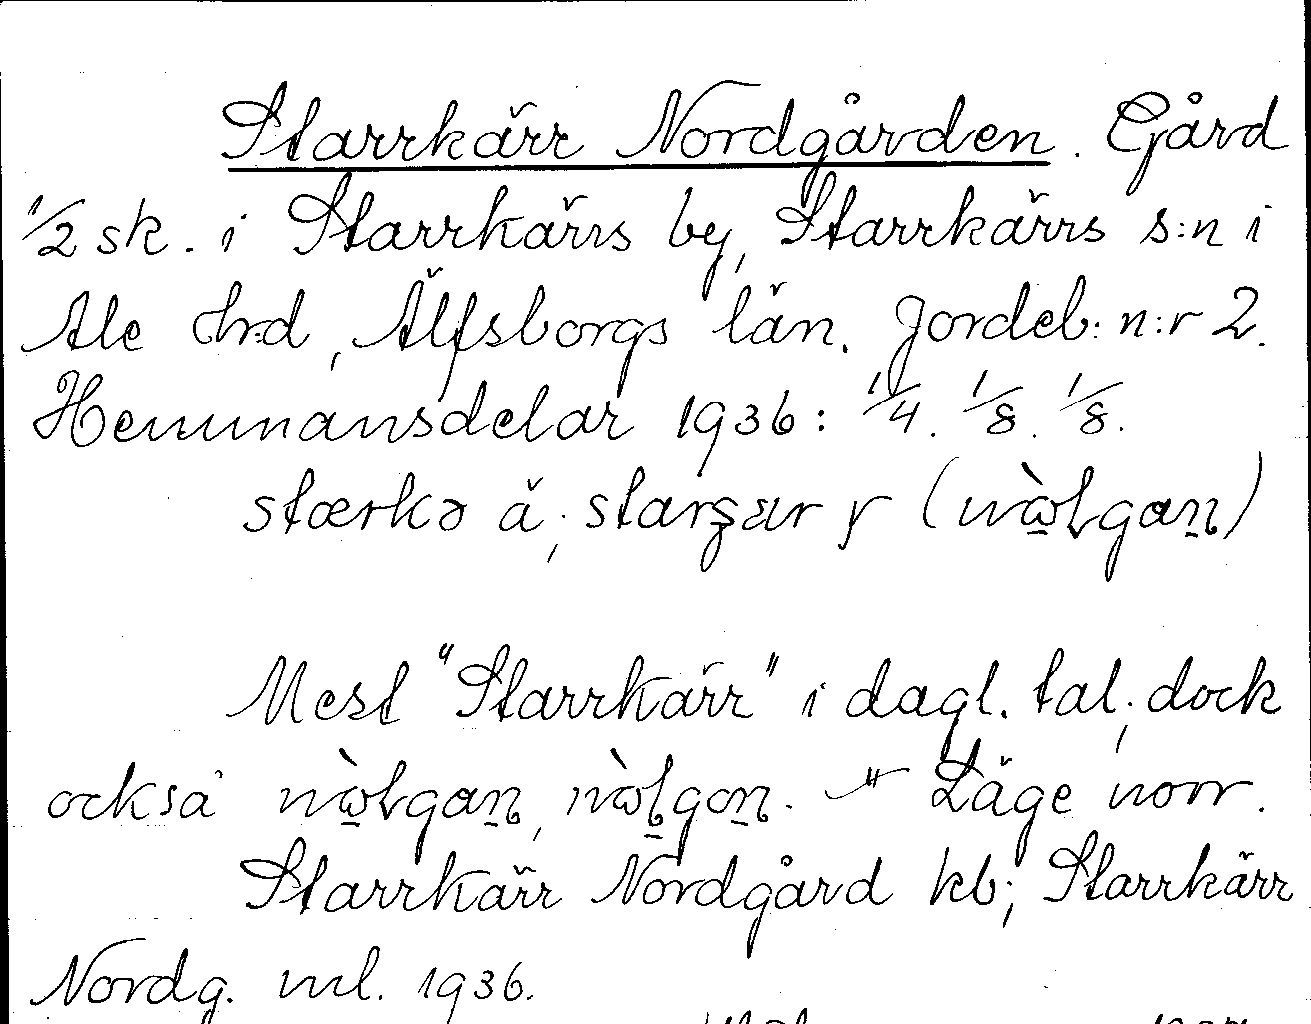 Starrkärr Nordgården. Gård
1/2 sk. i Starrkärrs by, Starrkärrs s:n i
Ale hrd, Älfsborgs län. Jordeb: n:r 2.
Hemmansdelar 1936: 1/4. 1/8. 1/8.
Mest "Starrkärr" i dagl. tal; dock
också Läge norr.
Starrkärr Nordgård kb; Starrkärr
Nordg. ml. 1936.